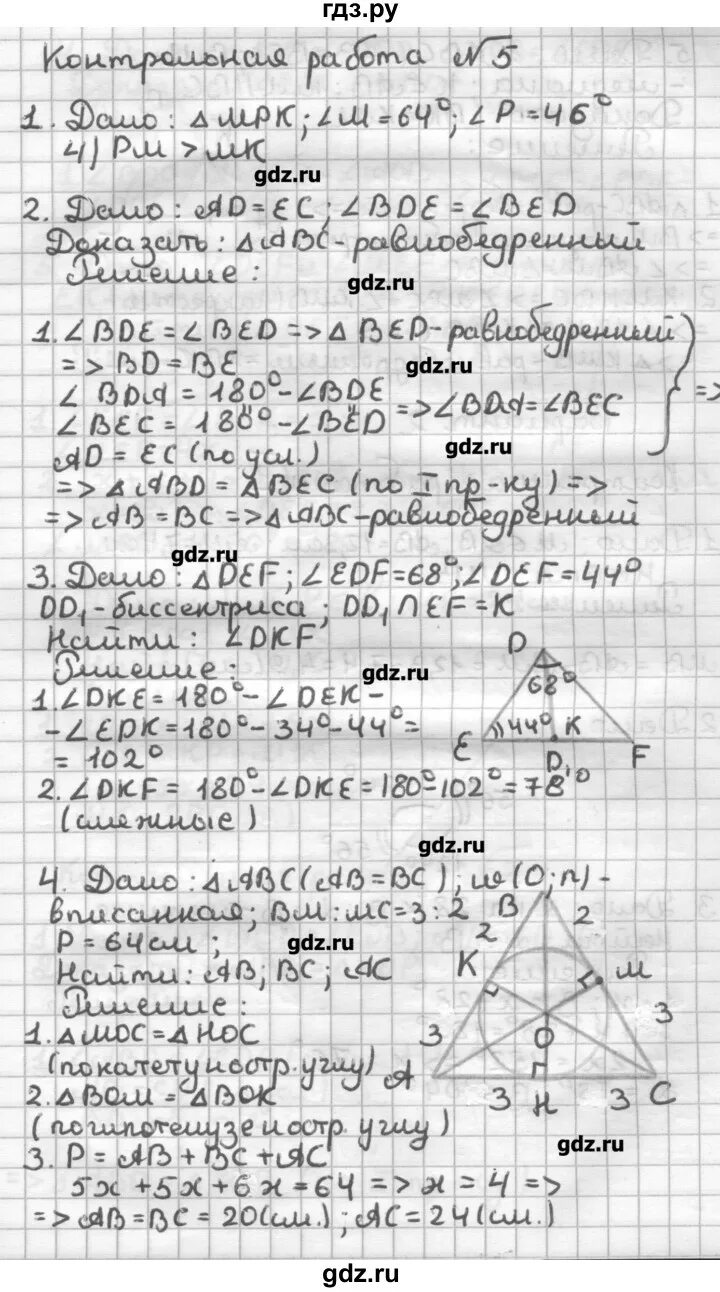 гдз.ру
Контрольная работа №5
1. Дано: △MPK; ∠M = 64°; ∠P = 46°
4) PM > MK
gdz.ru
2. Дано: AD = EC; ∠BDE = ∠BED
Доказать: △ABC-равнобедренный
Решение:
gdz.ru
1. ∠BDE = ∠BED => △BED-равнобедренный
=> BD = BE
gdz.ru
∠BDA = 180° - ∠BDE
∠BEC = 180° - ∠BED => ∠BDA = ∠BEC
=>
AD = EC (по усл.)
gdz.ru
=> △ABD = △BEC (по I пр-ку) =>
=> AB = BC => △ABC-равнобедренный
gdz.ru
3. Дано: △DEF; ∠EDF = 68°; ∠DEF = 44°
DD₁-биссектриса; DD₁ ∩ EF = K
Найти: ∠DKF
Решение:
gdz.ru
1. ∠DKE = 180° - ∠DEK -
- ∠EDK = 180° - 34° - 44° =
= 102°
D
68°
44°
K
E
D₁
F
2. ∠DKF = 180° - ∠DKE = 180° - 102° = 78°
(смежные)
gdz.ru
4. Дано: △ABC (AB = BC); ω (O; r) -
вписанная; BM : MC = 3 : 2
P = 64 см;
gdz.ru
Найти: AB; BC; AC
Решение:
1. △MOC = △HOC
(по катету и остр. углу)
2. △BOM = △BOK
(по гипотенузе и остр. углу)
B
2
2
K
M
3
3
O
A
Г
C
3
H
3
gdz.ru
3. P = AB + BC + AC
5x + 5x + 6x = 64 => x = 4 =>
=> AB = BC = 20 (см.); AC = 24 (см.)
gdz.ru